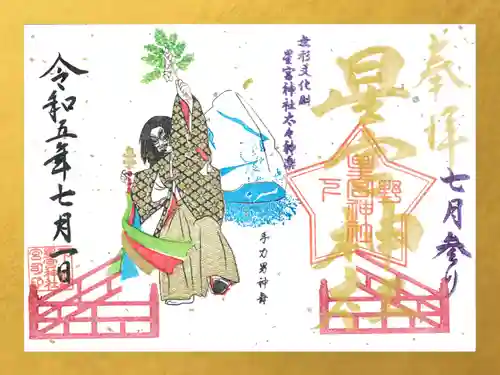 奉拝
七月参り
星宮神社
星宮神社
下野
無形文化財
星宮神社太々神楽
手力男神舞
令和五年七月一日